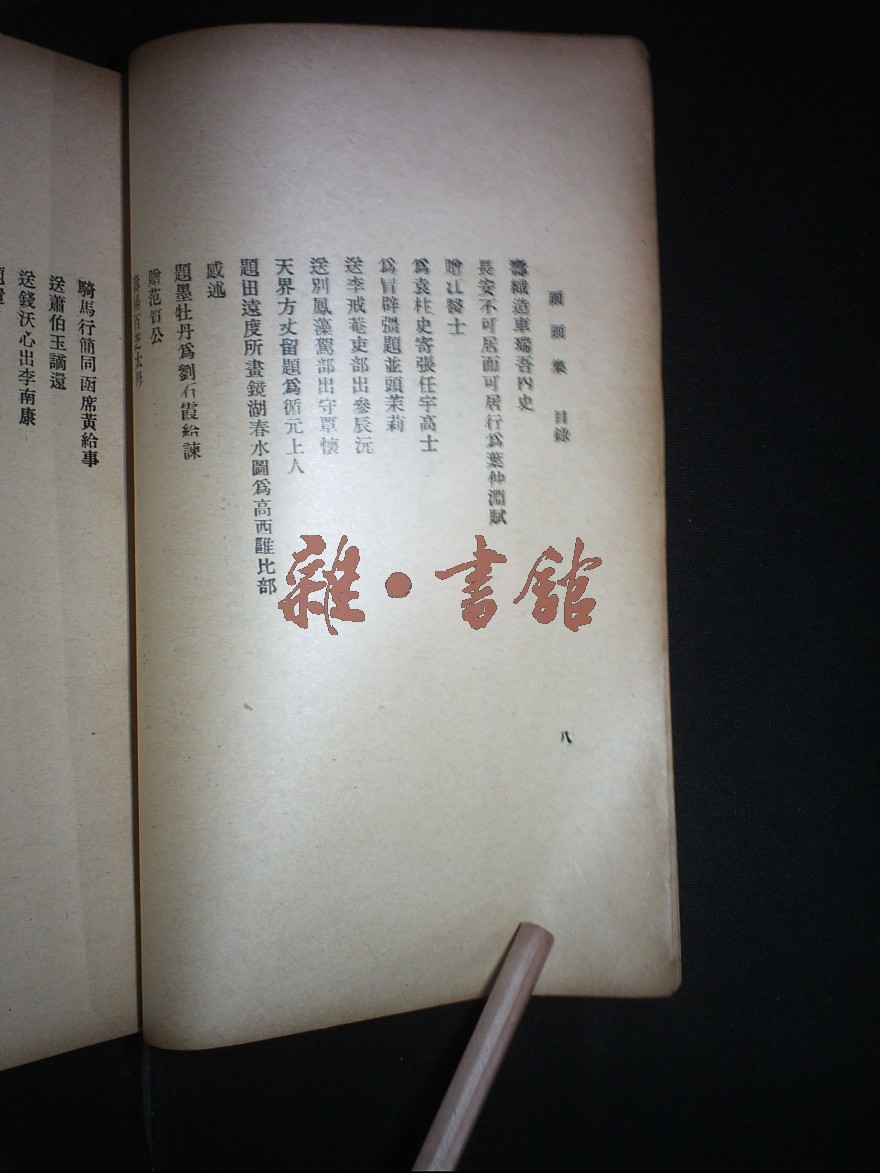 頭頭樂 目錄
壽織造車瑞吾內史
長安不可居而可居行爲葉仲淵賦
贈江醫士
爲袁柱史寄張任宇高士
爲冒辟彊題並頭茉莉
送李戒菴吏部出參辰沅
送別鳳藻駕部出守覃懷
天界方丈留題爲循元上人
題田遠度所畫鏡湖春水圖爲高西雝比部
感述
題墨牡丹爲劉石霞給諫
贈范質公
八
騎馬行簡同函席黃給事
送蕭伯玉謫還
送錢沃心出李南康
雜·書館